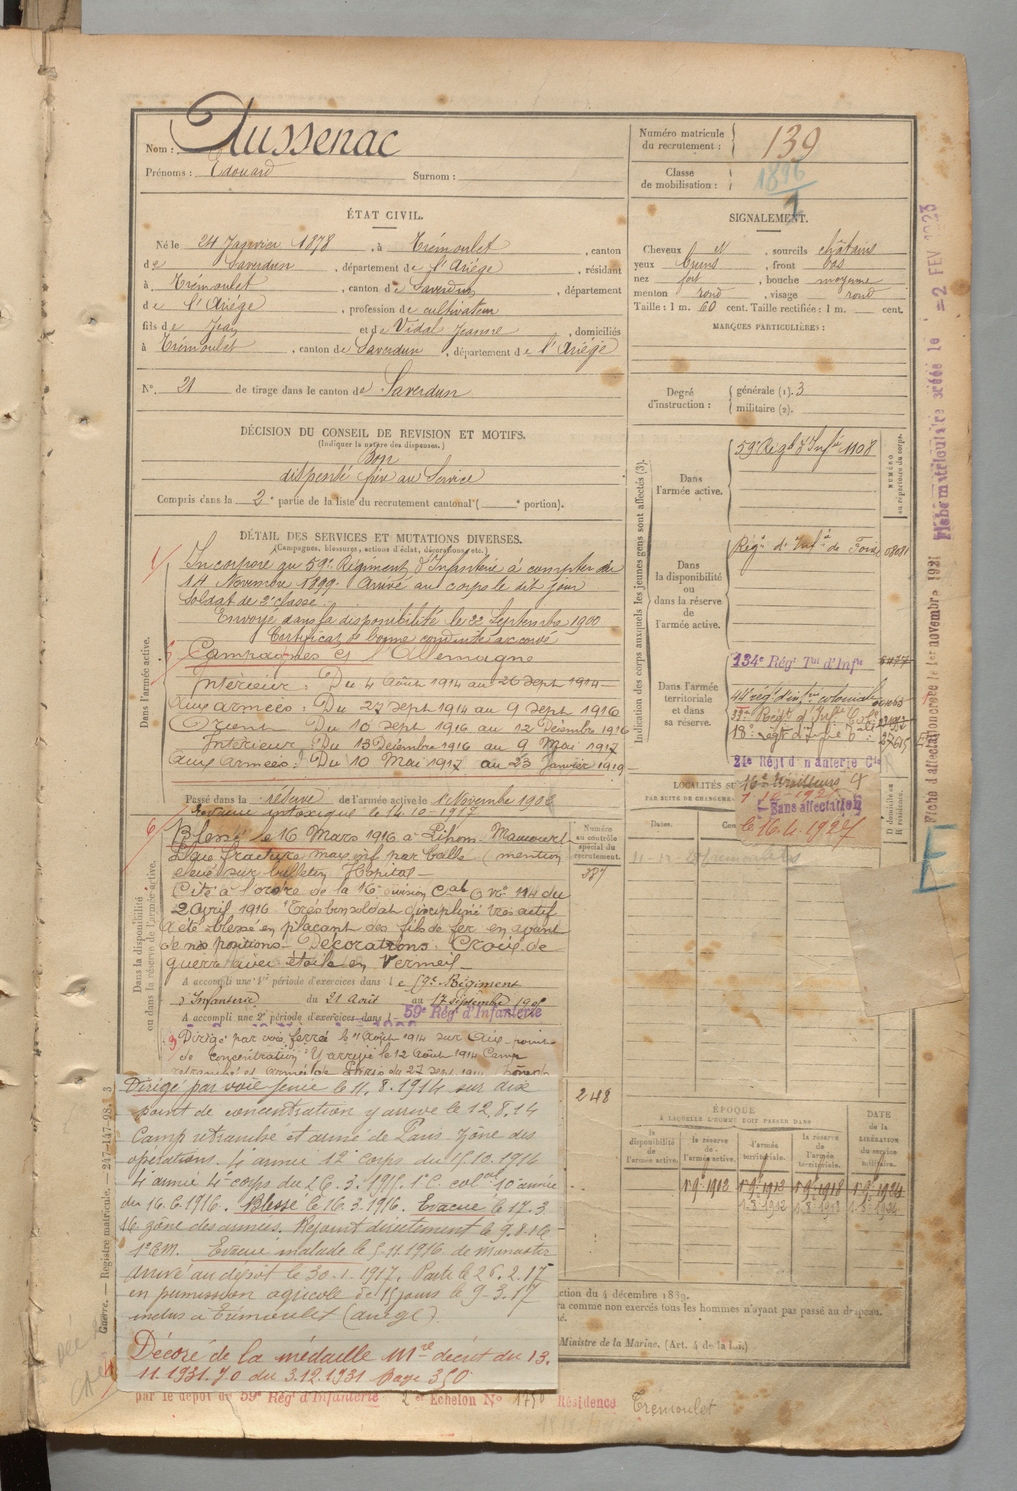 Nom : Aussenac
Prénoms : Edouard Surnom :
Numéro matricule du recrutement : 139
Classe de mobilisation : 1896
ÉTAT CIVIL.
Né le 24 Janvier 1878, à Trémoulet, canton
de Saverdun, département de l'Ariège, résidant
à Trémoulet, canton de Saverdun, département
de l'Ariège, profession de cultivateur
fils de Jean et de Vidal Jeanne, domiciliés
à Trémoulet, canton de Saverdun, département de l'Ariège
N° 21 de tirage dans le canton de Saverdun
SIGNALEMENT.
Cheveux et, sourcils châtains
yeux bruns, front bas
nez fort, bouche moyenne
menton rond, visage rond
Taille : 1 m. 60 cent. Taille rectifiée : 1 m. cent.
MARQUES PARTICULIÈRES :
Degré d'instruction : générale (1). 3
militaire (2).
DÉCISION DU CONSEIL DE REVISION ET MOTIFS.
(Indiquer la nature des dispenses.)
Bon
dispensé frère au Service
Compris dans la 2e partie de la liste du recrutement cantonal ( e portion).
DÉTAIL DES SERVICES ET MUTATIONS DIVERSES.
(Campagnes, blessures, actions d'éclat, décorations, etc.)
Dans l'armée active.
Incorporé au 59e Régiment d'Infanterie à compter du
14 Novembre 1899. Arrivé au corps le dit jour
soldat de 2e classe.
Envoyé dans la disponibilité le 22 Septembre 1900
Certificat de bonne conduite accordé
Campagnes Ct l'Allemagne
Intérieur : Du 4 Août 1914 au 26 Sept 1914
Aux armées : Du 27 Sept 1914 au 9 Sept 1916
Orient Du 10 Sept 1916 au 12 Décembre 1916
Intérieur : Du 13 Décembre 1916 au 9 Mai 1917
Aux armées : Du 10 Mai 1917 au 23 Janvier 1919
Passé dans la réserve de l'armée active le 1 Novembre 1902
intoxiqué le 14-10-1917
Dans la disponibilité ou dans la réserve de l'armée active.
Blessé le 16 Mars 1916 à Lihons
fracture par balle (mention
relevé sur bulletin Hopital
Cité à l'ordre de la 16e division Cal O n° 114 du
2 Avril 1916 Très bon soldat discipliné très actif
A été blessé en plaçant des fils de fer en avant
de nos positions. Décorations : Croix de
guerre avec étoile en Vermeil
A accompli une 1re période d'exercices dans le 59e Régiment
d'Infanterie du 21 Août au 17 Septembre
A accompli une 2e période d'exercices dans l 59e Rég d'Infanterie
Dirigé par voie ferrée le 11 Août 1914 sur Aix point
de concentration Y arrivé le 12 Août 1914 Camp
retranché et armée de Paris du 27 sept 1914
Numéro au contrôle spécial du recrutement.
387
248
Indication des corps auxquels les jeunes gens sont affectés (3).
Dans l'armée active.
59e Régt d'Infie 1108
NUMÉRO au répertoire du corps.
Dans la disponibilité ou dans la réserve de l'armée active.
Régt d'Infie de Foix
Dans l'armée territoriale et dans sa réserve.
134e Régt Tal d'Infie
44e régt d'infrie coloniale
24e Régt d'Infanterie Cle
16e Tirailleurs
Sans affectation
le 16.4.1927
LOCALITÉS
PAR SUITE DE CHANGEME
Dates.
D domicile ou R résidence.
Fiche d'affectation créée le 1er novembre 1921
Fiche matriculaire créée le = 2 FEV 1923
Dirigé par voie ferrée le 11.8.1914 sur Aix
point de concentration y arrive le 12.8.14
Camp retranché et armée de Paris zône des
opérations. 4e armée 12e corps du 15.10.1914
4e armée 4e corps du 26.3.1915. 1er C. colal 10e armée
du 16.6.1916. Blessé le 16.3.1916. Evacué le 17.3
16 zône des armées. Rejoint directement le 9.8.16
Evacué malade le 5.11.1916 de Monastir
arrivé au dépôt le 30.1.1917. Parti le 26.2.17
en permission agricole de 15 jours le 9.3.17
inclus à Trémoulet (ariège).
Décoré de la médaille Mre décret du 13.
11.1931. J.O du 3.12.1931 page 350
ÉPOQUE
À LAQUELLE L'HOMME DOIT PASSER DANS
la disponibilité de l'armée active.
la réserve de l'armée active.
l'armée territoriale.
la réserve de l'armée territoriale.
DATE de la LIBÉRATION du service militaire.
ction du 4 décembre 1889.
ra comme non exercés tous les hommes n'ayant pas passé au drapeau.
Ministre de la Marine. (Art. 4 de la Loi.)
Guerre. — Registre matricule. — 247-147-98.
par le dépôt du 59e Rég d'Infanterie 2 e Echelon N° 1750 Résidence Trémoulet